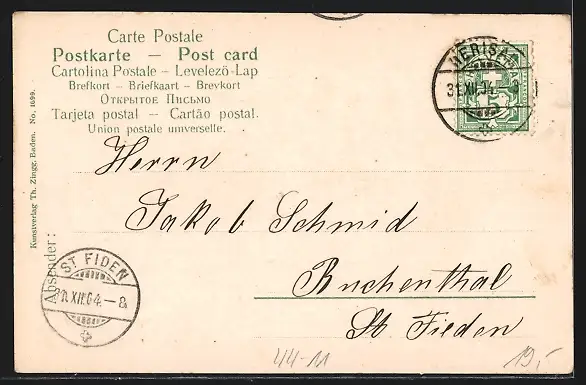 Carte Postale
Postkarte — Post card
Cartolina Postale – Levelező-Lap
Brefkort – Briefkaart – Brevkort
Открытое Письмо
Tarjeta postal – Cartão postal.
Union postale universelle.
HERISAU
31.XII.04. – 8
5
Kunstverlag Th. Zingg, Baden. No. 1699.
Herrn
Jakob Schmid
Absender:
ST FIDEN
31.XII.04. – 8
Buchenthal
St. Fieden
44-11
19,-